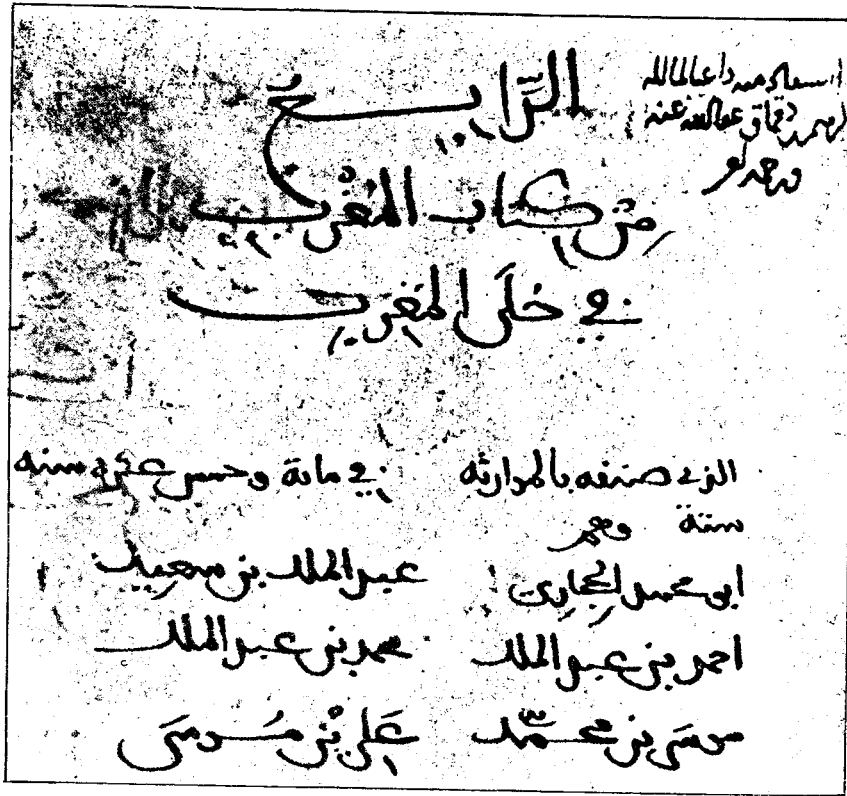 استفاد منه داعيا لمالكه
ابرهيم بن دقماق عفا الله عنه
الرَّابعُ
من كتاب المُغْرِب
في حُلَى المَغرِب
الذي صنفه بالموارثة في مائة وخمس عشرة سنة
ستة وهم
ابو محمد الحجاري عبد الملك بن سعيد
احمد بن عبد الملك محمد بن عبد الملك
موسى بن محمّد عَلي بْن مُوسَى